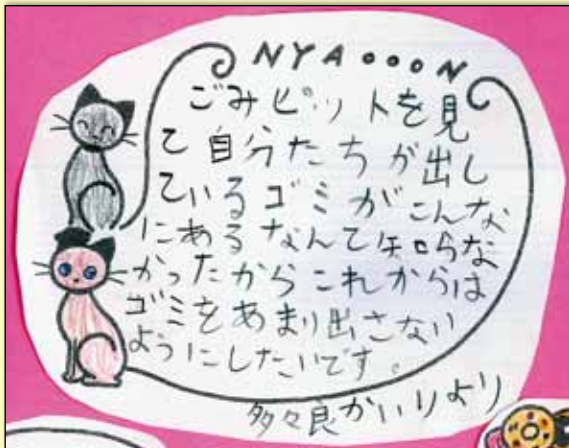 NYA●●●N
ごみピットを見
て自分たちが出し
ているゴミがこんな
にあるなんて知らな
かったからこれからは
ゴミをあまり出さない
ようにしたいです。
多々良かいりより